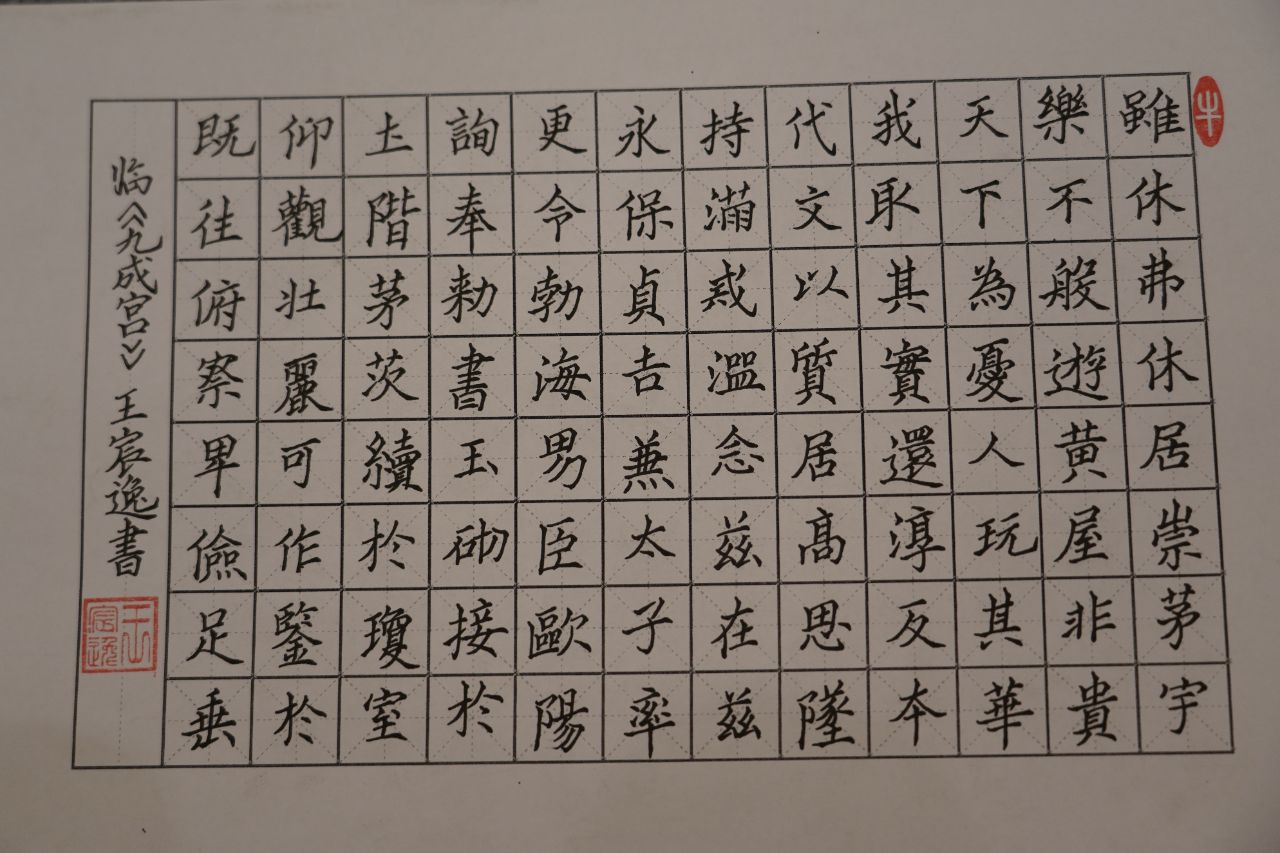 雖休弗休居崇茅宇
樂不般遊黃屋非貴
天下為憂人玩其華
我取其實還淳反本
代文以質居高思墜
持滿戒溢念茲在茲
永保貞吉兼太子率
更令勃海男臣歐陽
詢奉勅書玉砌接於
土階茅茨續於瓊室
仰觀壯麗可作鑒於
既往俯察卑儉足垂
临《九成宫》王宸逸書
王宸逸
牛